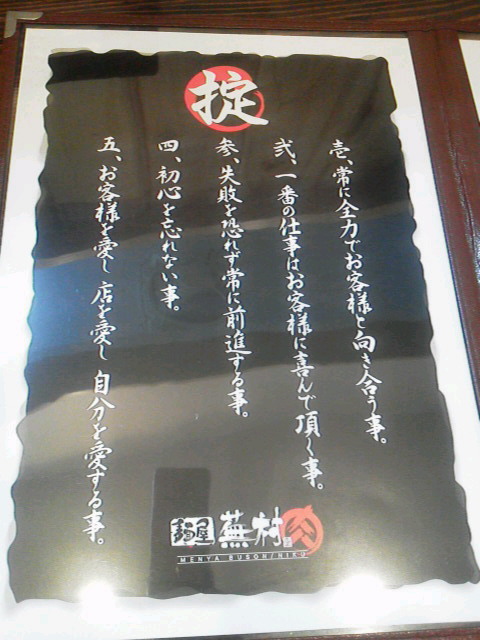 掟
壱、常に全力でお客様と向き合う事。
弐、一番の仕事はお客様に喜んで頂く事。
参、失敗を恐れず常に前進する事。
四、初心を忘れない事。
五、お客様を愛し 店を愛し 自分を愛する事。
麺屋 蕪村
MENYA BUSON/NIKU